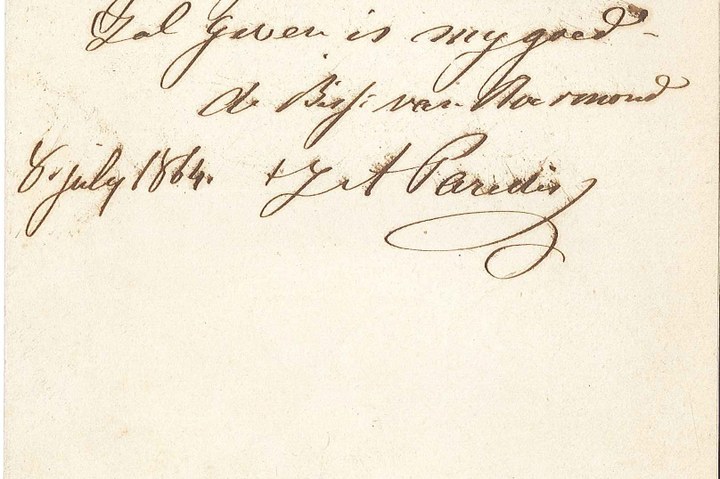 Zal Geven is my goed
de Biss: van Roermond
8 july 1864. + J A Paredis